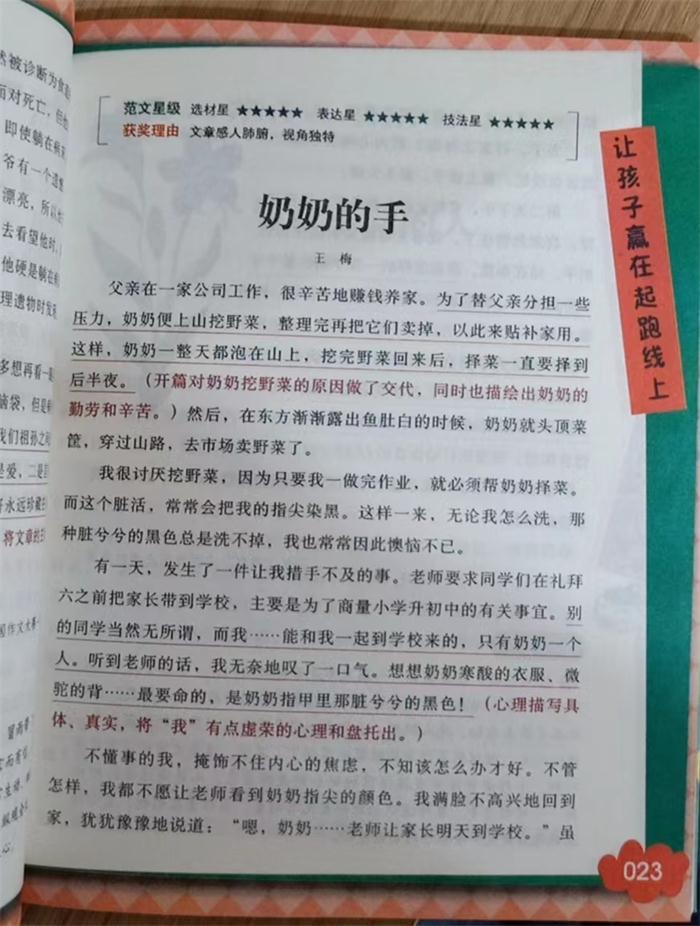 范文星级 选材星 ★★★★★ 表达星 ★★★★★ 技法星 ★★★★★
获奖理由 文章感人肺腑，视角独特
奶奶的手
王 梅
父亲在一家公司工作，很辛苦地赚钱养家。为了替父亲分担一些
压力，奶奶便上山挖野菜，整理完再把它们卖掉，以此来贴补家用。
这样，奶奶一整天都泡在山上，挖完野菜回来后，择菜一直要择到
后半夜。（开篇对奶奶挖野菜的原因做了交代，同时也描绘出奶奶的
勤劳和辛苦。）然后，在东方渐渐露出鱼肚白的时候，奶奶就头顶菜
筐，穿过山路，去市场卖野菜了。
我很讨厌挖野菜，因为只要我一做完作业，就必须帮奶奶择菜。
而这个脏活，常常会把我的指尖染黑。这样一来，无论我怎么洗，那
种脏兮兮的黑色总是洗不掉，我也常常因此懊恼不已。
有一天，发生了一件让我措手不及的事。老师要求同学们在礼拜
六之前把家长带到学校，主要是为了商量小学升初中的有关事宜。别
的同学当然无所谓，而我……能和我一起到学校来的，只有奶奶一个
人。听到老师的话，我无奈地叹了一口气。想想奶奶寒酸的衣服、微
驼的背……最要命的，是奶奶指甲里那脏兮兮的黑色！（心理描写具
体、真实，将“我”有点虚荣的心理和盘托出。）
不懂事的我，掩饰不住内心的焦虑，不知该怎么办才好。不管
怎样，我都不愿让老师看到奶奶指尖的颜色。我满脸不高兴地回到
家，犹犹豫豫地说道：“嗯，奶奶……老师让家长明天到学校。”虽
让孩子赢在起跑线上
023
然被诊断为食道
面对死亡，但他
即使躺在病床
爷有一个遗憾
漂亮，所以他
去看望他时，
他硬是躺在病
理遗物时发现
多想再看一眼
脑袋，但是
我们祖孙之间
是爱，二是
永远珍藏
将文章的主